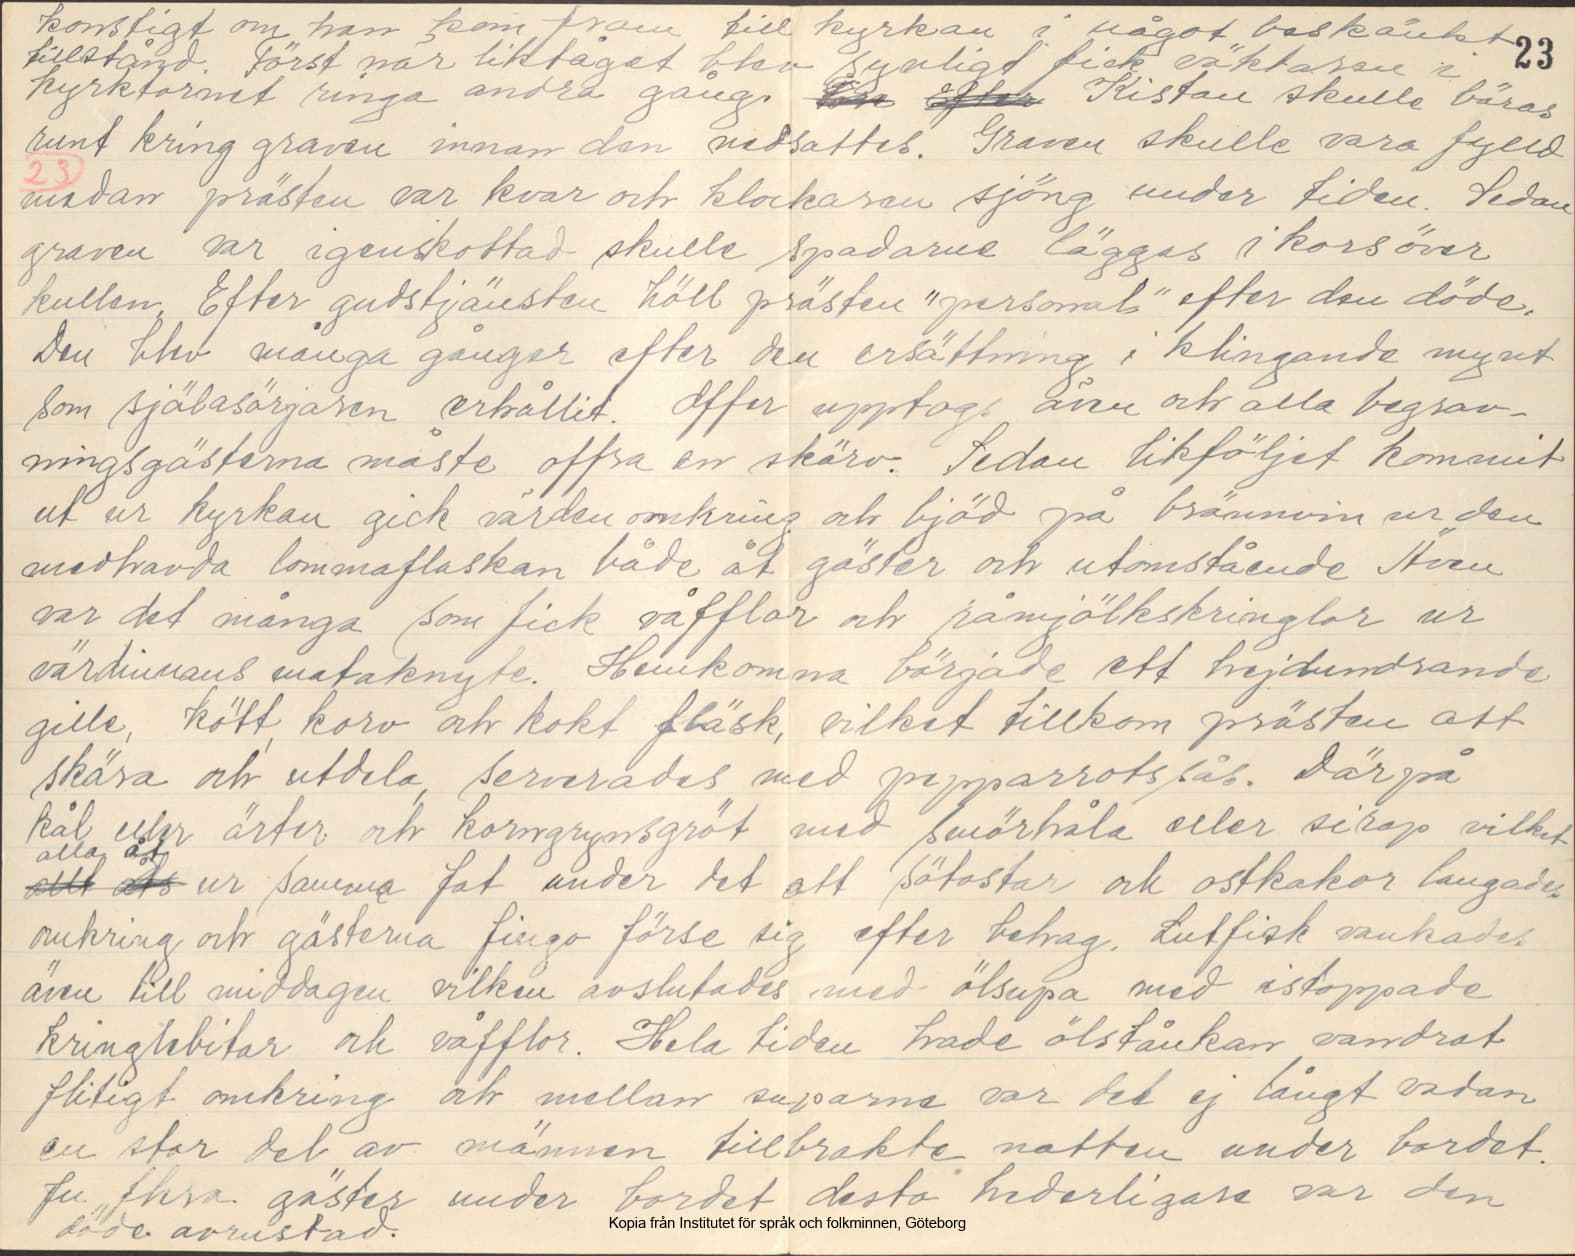 konstigt om han kom fram till kyrkan i något beskänkt
23
tillstånd. Först när liktåget blev synligt fick väktaren i
kyrktornet ringa andra gång. Före Efter Kistan skulle bäras
runt kring graven innan den nedsattes. Graven skulle vara fylld
23
medan prästen var kvar och klockaren sjöng under tiden. Sedan
graven var igenskottad skulle spadarne läggas i kors över
kullen. Efter gudstjänsten höll prästen "personal" efter den döde.
Den blev många gånger efter den ersättning i klingande mynt
som själasörjaren erhållit. Offer upptogs även och alla begrav-
ningsgästerna måste offra en skärv. Sedan likföljet kommit
ut ur kyrkan gick värden omkring och bjöd på brännvin ur den
medhavda lommaflaskan både åt gäster och utomstående Även
var det många som fick våfflor och råmjölkskringlor ur
värdinnans mataknyte. Hemkomna började ett hejdundrande
gille, kött, korv och kokt fläsk, vilket tillkom prästen att
skära och utdela, serverades med pepparrotssås. Därpå
kål eller ärter och korngrynsgröt med smörhåla eller sirap vilket
alla åt
allt åts ur samma fat under det att sötostar och ostkakor langades
omkring och gästerna fingo förse sig efter behag. Lutfisk vankades
även till middagen vilken avslutades med ölsupa med istoppade
kringlebitar och våfflor. Hela tiden hade ölstånkan vandrat
flitigt omkring och mellan suparne var det ej långt vadan
en stor del av männen tillbrakte natten under bordet.
Ju flera gäster under bordet desto hederligare var den
döde avrustad.
Kopia från Institutet för språk och folkminnen, Göteborg